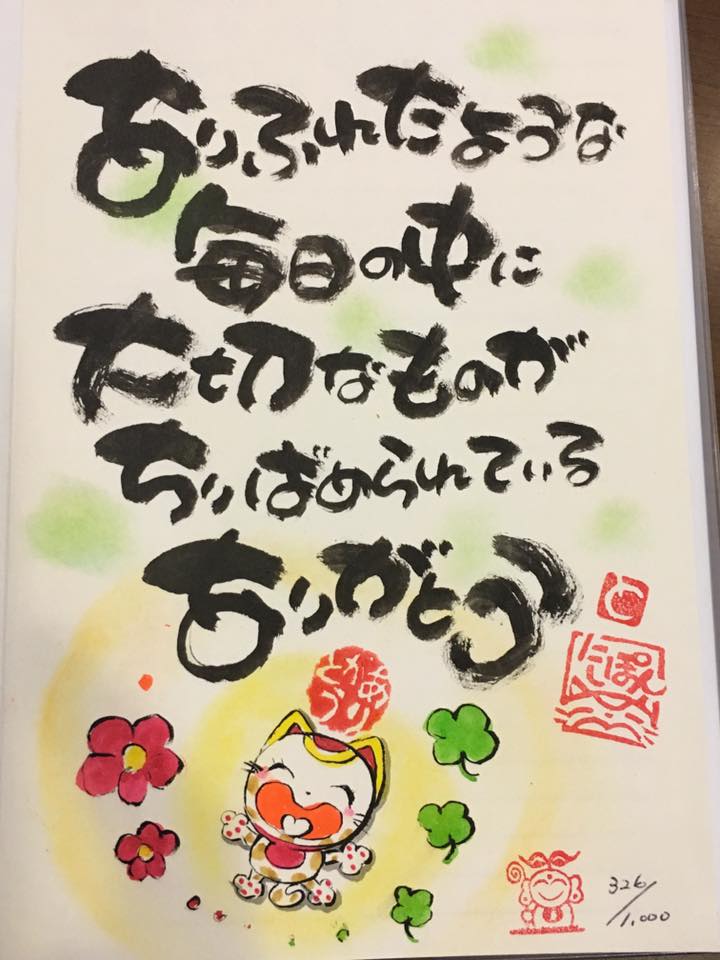 ありふれたような
毎日の中に
大切なものが
ちりばめられている
ありがとう
ありがとう
にっぽん
326/1,000